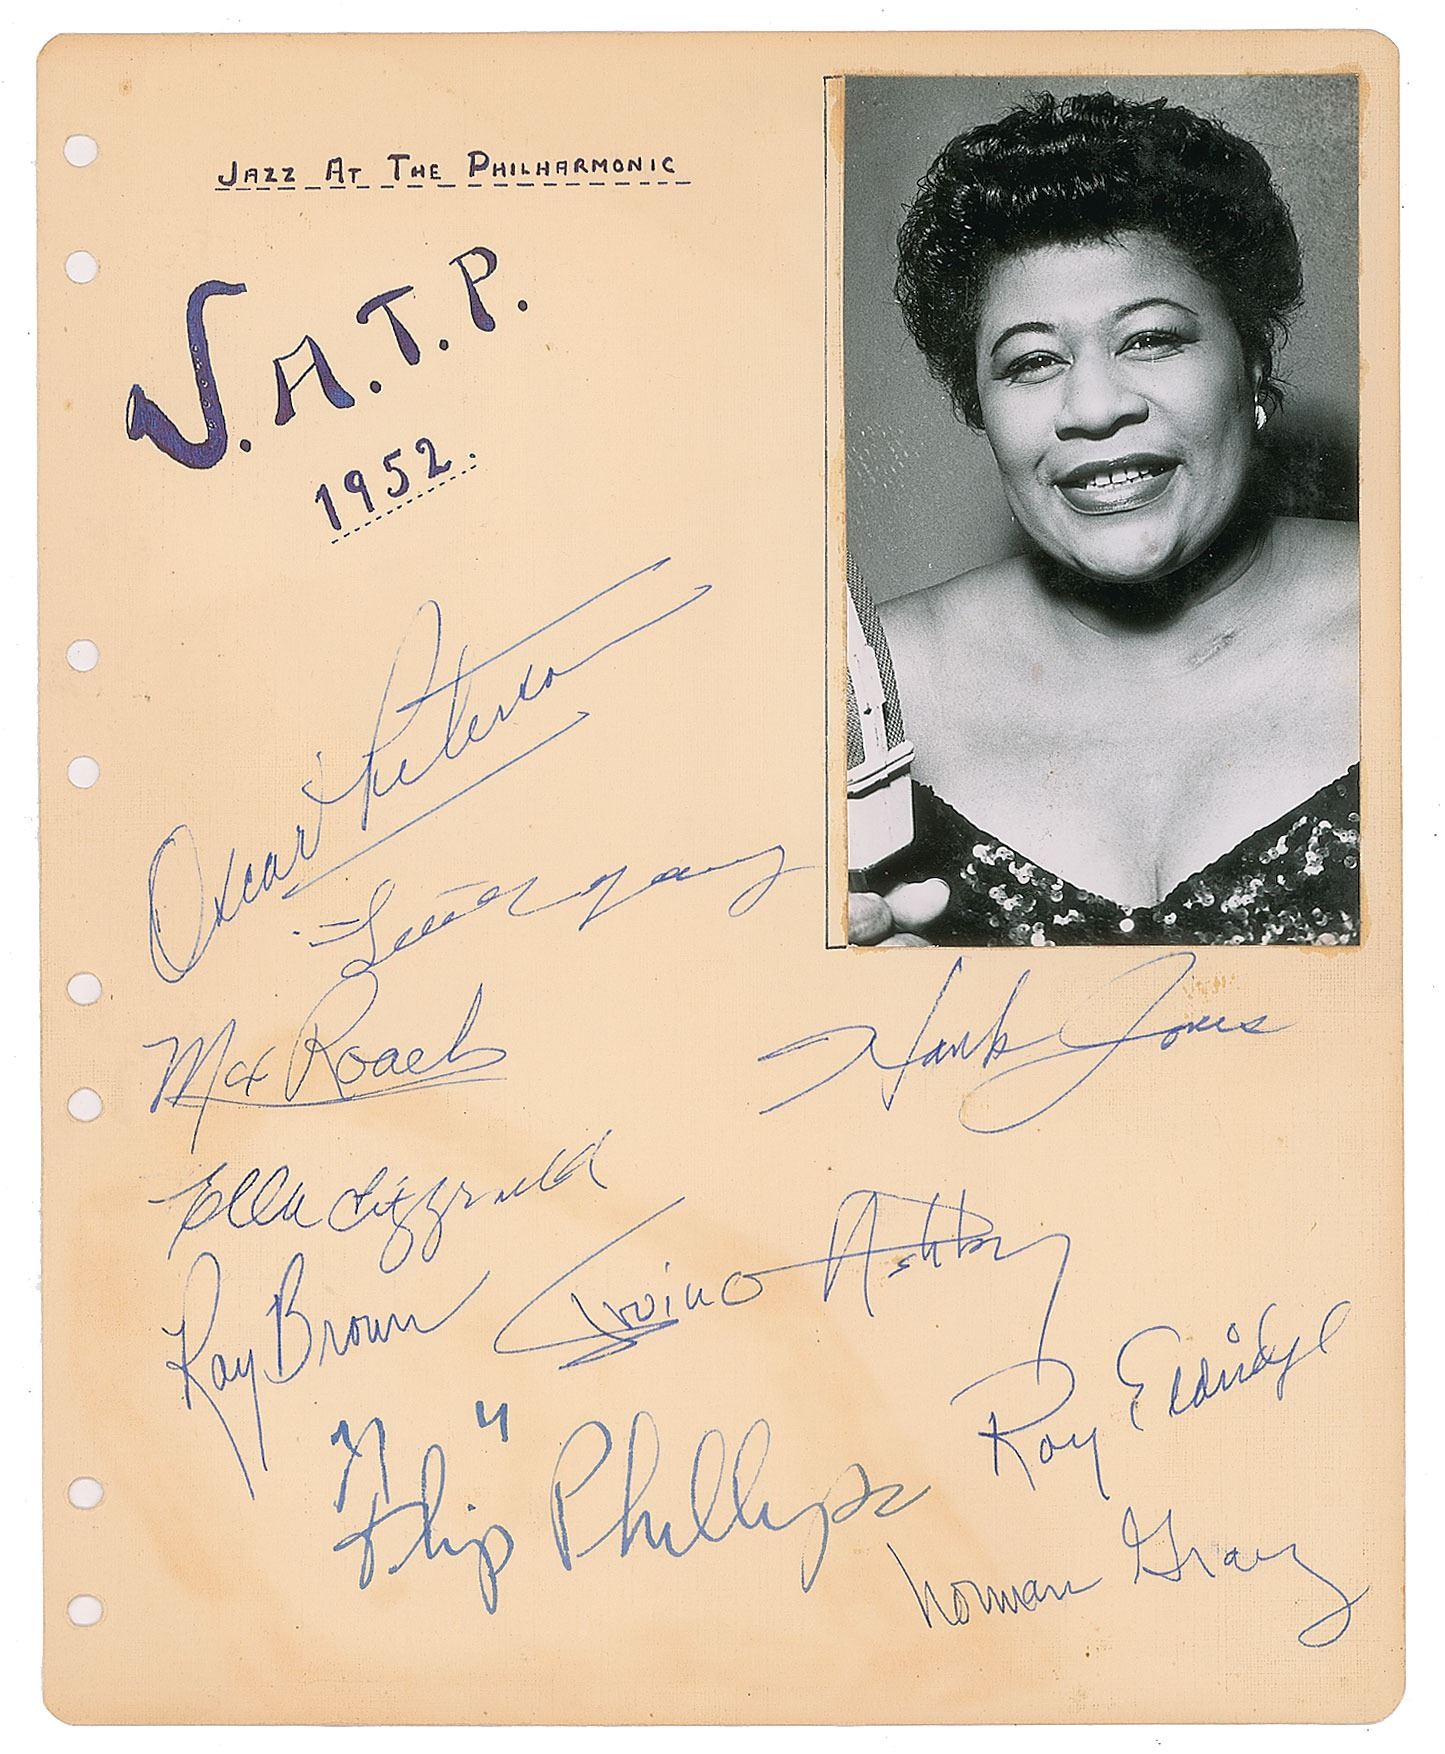 JAZZ AT THE PHILHARMONIC
J.A.T.P.
1952.
Oscar Peterson
Lester Young
Max Roach
Hank Jones
Ella Fitzgerald
Ray Brown
Irving Ashby
Roy Eldridge
"Flip" Phillips
Norman Granz